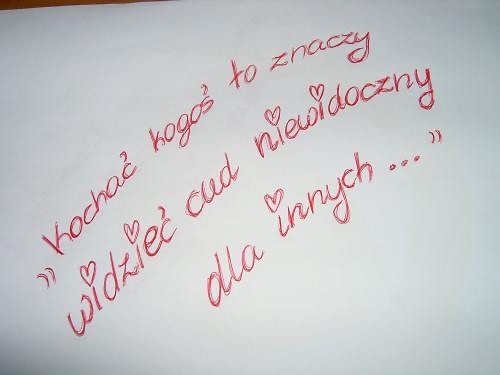 "Kochać kogoś to znaczy
widzieć cud niewidoczny
dla innych..."